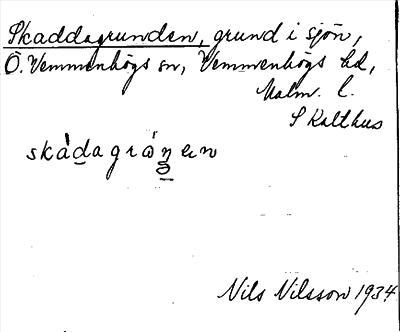 Skaddagrunden, grund i sjön,
Ö. Vemmenhögs sn, Vemmenhögs hd,
Malm. l.
S Kalthus
Nils Nilsson 1934